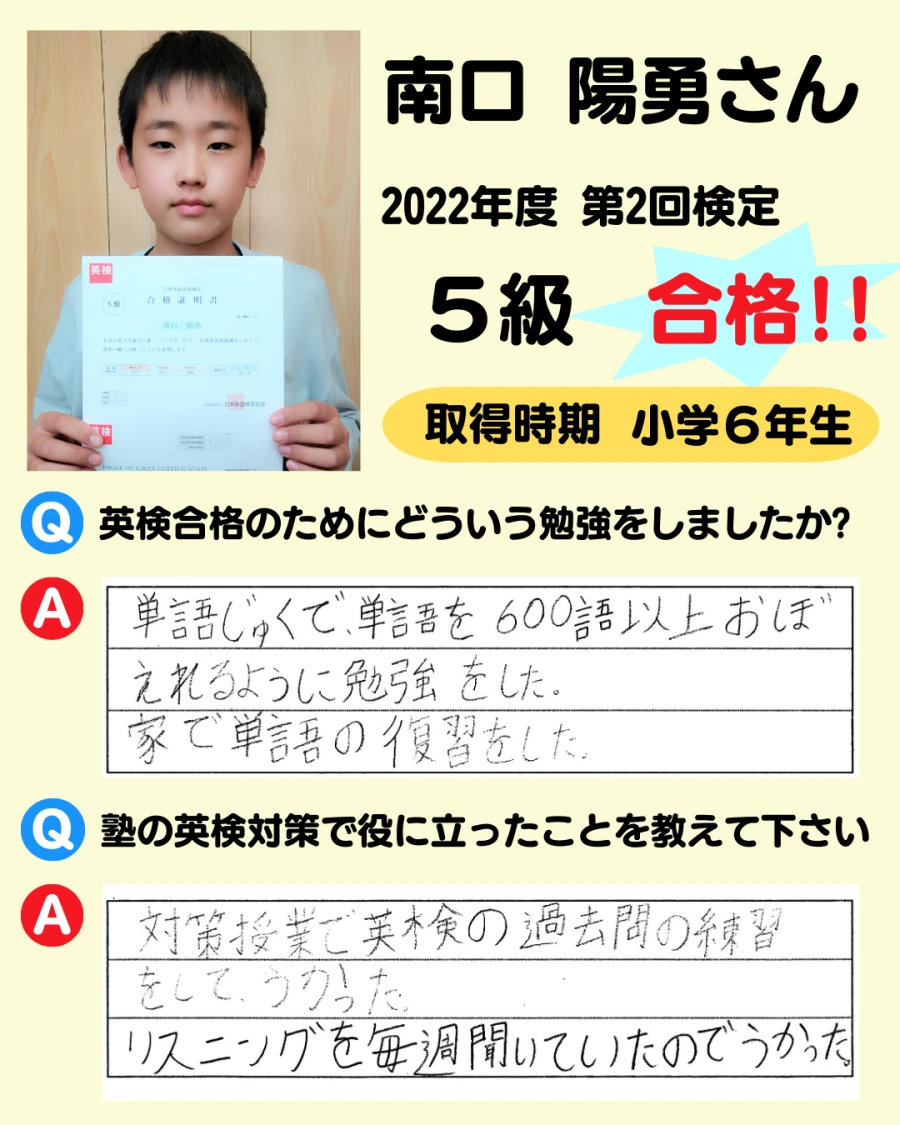 南口 陽勇さん
2022年度 第2回検定
5級 合格!!
取得時期 小学6年生
英検
5級
合格証明書
南口 陽勇
日本英語検定協会
英検
PROOF OF EIKEN CERTIFICATION
Q 英検合格のためにどういう勉強をしましたか?
A
単語じゅくで、単語を600語以上おぼ
えれるように勉強をした。
家で単語の復習をした。
Q 塾の英検対策で役に立ったことを教えて下さい
A
対策授業で英検の過去問の練習
をして、うかった。
リスニングを毎週聞いていたのでうかった。